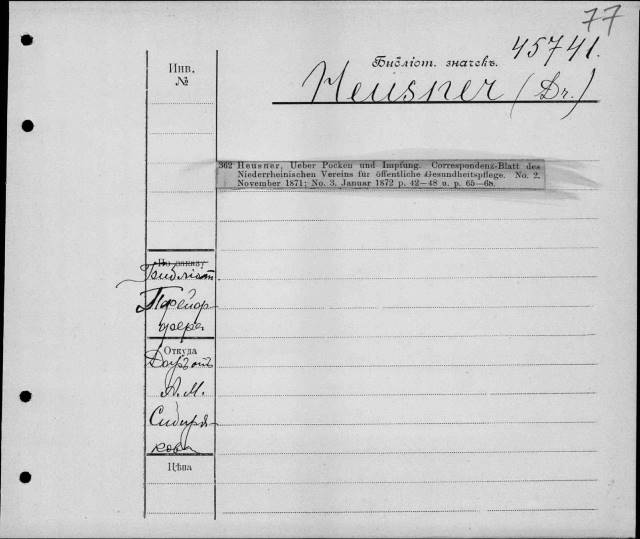 77
Инв.
№
Библіот. значекъ. 45741.
Heusner (Dr.)
362 Heusner, Ueber Pocken und Impfung. Correspondenz-Blatt des
Niederrheinischen Vereins für öffentliche Gesundheitspflege. No. 2.
November 1871; No. 3. Januar 1872 p. 42—48 u. p. 65—68.
По заказу
Библіот.
Пфейф-
фера
Откуда
Даръ отъ
А. М.
Сибиря-
кова
Цѣна